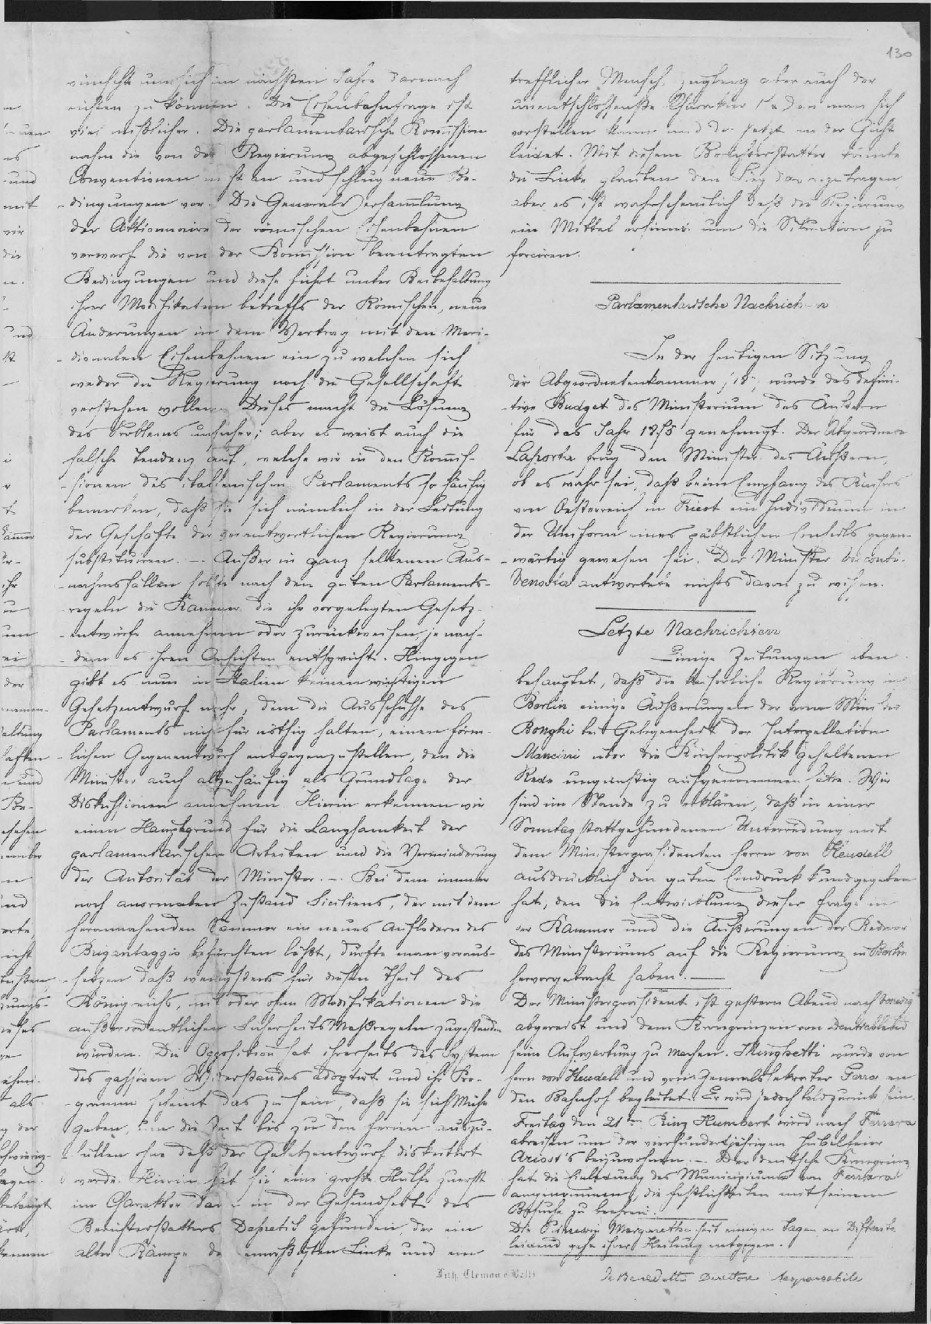 130
und sich im nächsten Jahre darnach
richten zu können. Die Eisenbahnfrage ist
viel mißlicher. Die parlamentarische Komission
nahm die von der Regierung abgeschlossenen
Conventionen nicht an und schlug neue Be-
dingungen vor. Die Generalversammlung
der Aktionaire der römischen Eisenbahnen
verwarf die von der Komission beantragten
Bedingungen und diese führt unter Beibehaltung
ihrer Modifikation betreffs der Römischen, neue
Änderungen in dem Vertrag mit den Meri-
-dionalen Eisenbahnen ein zu welchen sich
weder die Regierung noch die Gesellschaft
verstehen wollen. Dieses macht die Lösung
des Problems unsicher; aber es weist auch die
falsche Tendenz auf, welche wir in den Komis-
-sionen des italienischen Parlaments so häufig
bemerken, daß sie sich nämlich in der Leitung
der Geschäfte der verantwortlichen Regierung
substituiren. — Außer in ganz seltenen Aus-
-nahmsfällen sollte nach den guten Parlaments-
-regeln die Kammer die ihr vorgelegten Gesetz-
-entwürfe annehmen oder zurückweisen je nach-
-dem es ihren Ansichten entspricht. Hingegen
gibt es nun in Italien keinen wichtigen
Gesetzentwurf mehr, dem die Ausschüsse des
Parlaments nicht für nöthig halten, einen förm-
-lichen Gegenentwurf entgegenzustellen, den die
Minister auch allzuhäufig als Grundlage der
Diskussionen annehmen. Hierin erkennen wir
einen Hauptgrund für die Langsamkeit der
parlamentarischen Arbeiten und die Verminderung
der Autorität der Minister. — Bei dem immer
noch anormalen Zustand Siciliens, der mit dem
herannahenden Sommer ein neues Aufleben des
Brigantaggio befürchten läßt, durfte man voraus-
-setzen daß wenigstens für diesen Theil des
Königreichs, mit oder ohne Modifikationen die
außerordentlichen Sicherheits Maßregeln zugestanden
würden. Die Opposition hat ihrerseits das System
des passiven Widerstandes adoptirt und ihr Pro-
-gramm scheint das zu sein, daß sie sich Mühe
geben, um die Zeit bis zu den Ferien auszu-
füllen ohne daß der Gesetzentwurf diskutirt
werde. Hierin hat sie eine große Hülfe zuerst
im Charakter dann in der Gesundheit des
Berichterstatters Depretis gefunden, der ein
alter Kämpe der gemäßigten Linke und ein
trefflicher Mensch, zugleich aber auch der
unentschlossenste Charakter ist den man sich
vorstellen kann und der jetzt an der Gicht
leidet. Mit diesem Berichterstatter könnte
die Linke glauben den Sieg davonzutragen
aber es ist wahrscheinlich daß die Regierung
ein Mittel ersinnt um die Situation zu
forciren.
Parlamentarische Nachrichten
In der heutigen Sitzung
der Abgeordnetenkammer, wurde das defini-
-tive Budget des Ministerium des Äußern
für das Jahr 1875 genehmigt. Der Abgeordnete
Laporta frug den Minister des Äußern,
ob es wahr sei, daß beim Empfang des Kaisers
von Oesterreich in Triest ein Individuum in
der Uniform eines päbstlichen Soldaten gegen-
-wärtig gewesen sei. Der Minister Visconti-
Venosta antwortete nichts davon zu wissen.
Letzte Nachrichten
Einige Zeitungen haben
behauptet, daß die kaiserliche Regierung in
Berlin einige Äußerungen der vom Minister
Bonghi bei Gelegenheit der Interpellation
Mancini über die Kirchenpolitik gehaltenen
Rede ungünstig aufgenommen habe. Wir
sind im Stande zu erklären, daß in einer
Sonntag stattgefundenen Unterredung mit
dem Ministerpräsidenten Herr von Keudell
ausdrücklich den guten Eindruck kundgegeben
hat, den die Entwicklung dieser Frage in
der Kammer und die Äußerungen der Redner
des Ministeriums auf die Regierung in Berlin
hervorgebracht haben. —
Der Ministerpräsident ist gestern Abend nach Venedig
abgereist um dem Kronprinzen von Deutschland
seine Aufwartung zu machen. Minghetti wurde von
Herrn von Keudell und vom Generalsekretär an
den Bahnhof begleitet. Er wird jedoch bald zurück sein.
Freitag den 21 — Prinz Humbert wird nach Ferrara
abreisen um der vierhundertjährigen Jubelfeier
Ariost's beizuwohnen. — Der deutsche Kronprinz
hat die Einladung des Municipiums von Ferrara
angenommen, die Festlichkeiten mit seinem
Besuche zu beehren.
Die Prinzessin Margaretha seit einigen Tagen an
leidend geht ihrer Heilung entgegen.
De Benedetti Direttore responsabile
Lith. Cleman